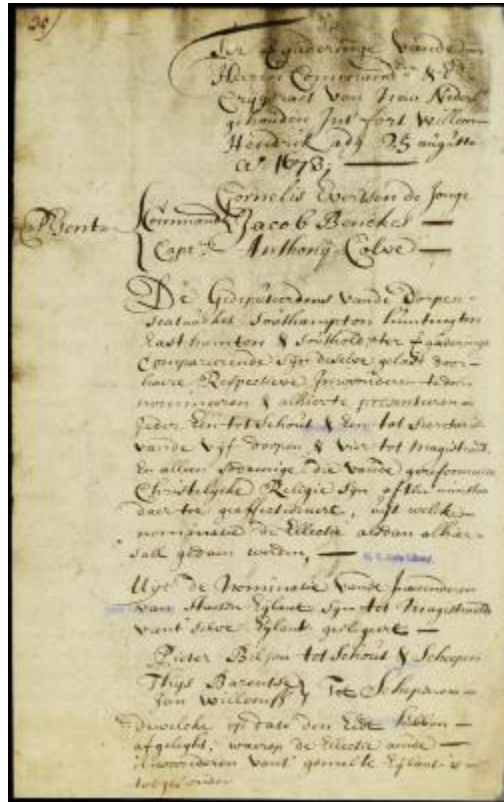 30
Ter vergaderinge vande
Heeren Commandrs & Ed
Crygsraet van Nieu Nederl
gehouden Int fort Willem
Hendrick ady 25 augusta
Ao 1673;
Cornelis Evertsen de Jonge
Command Jacob Benckes
Capt Anthonij Colve
De Gedeputeerdens vande Dorpen
Seatauckes Southampton Huntington
Easthamton & Southold ter
Comparerende syn deselve gelast door
haere Respective Inwoonders te doen
nomineeren & alhier te presenteren
Ieder Een tot Schout & Een tot Secretaris
vande vyf dorpen & vier tot magistraets
En alleen die vande gereformeerde
Christelycke Religie syn ofte ten minsten
daer toe geaffectioneert, uyt welcke
nominatie de Electie aldan alhier
sall gedaen werden,
N. Y. State Library
Uyt de Nominatie vande Inwoonderen
van Staeten Eylant syn tot Magistraets
vant selve Eylant geeligeert
Pieter Biljou tot Schout & Schepen
Thys Barentse
Jan Willemse } Tot Schepenen
dewelcke op dato den Eedt hebben
afgeleght, waerop de Electie aende
Inwoonderen vant gemelte Eylant is